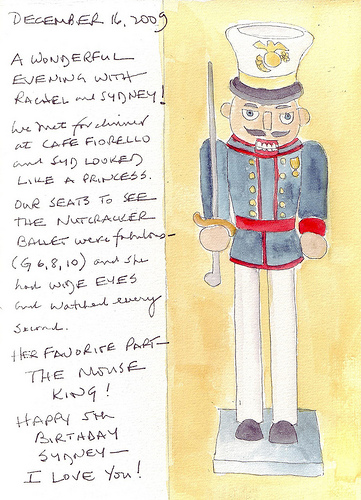 DECEMBER 16, 2009
A WONDERFUL
EVENING WITH
RACHEL and SYDNEY!
We met for dinner
at CAFE FIORELLO
and SYD LOOKED
LIKE A PRINCESS.
OUR SEATS TO SEE
THE NUTCRACKER
BALLET were fabulous—
(G 6, 8, 10) and she
had WIDE EYES
and watched every
second.
HER FAVORITE PART—
THE MOUSE
KING!
HAPPY 5th
BIRTHDAY
SYDNEY—
I LOVE YOU!